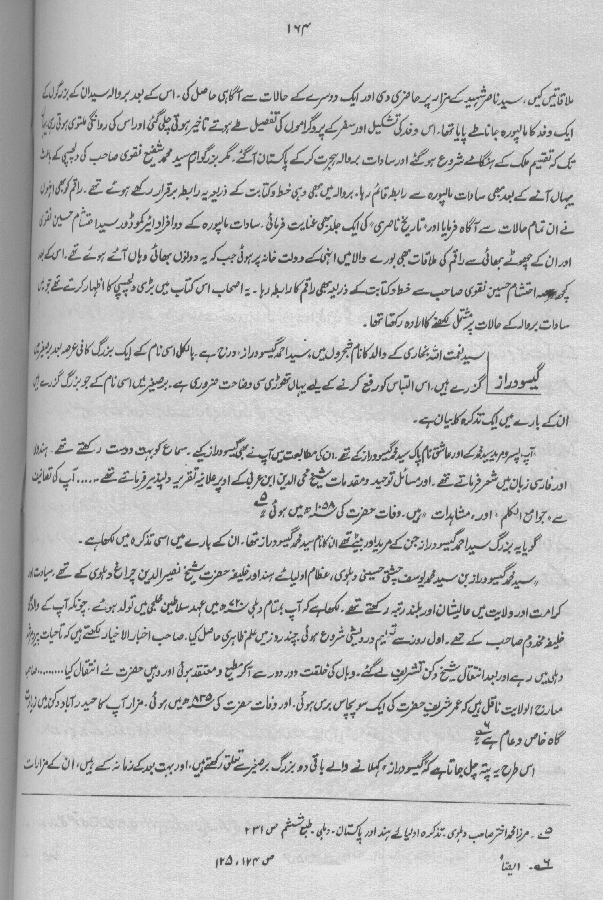 ۱۶۴
ملاقاتیں کیں، سید ناصر شہید کے مزار پہ حاضری دی اور ایک دوسرے کے حالات سے آگاہی حاصل کی۔ اس کے بعد بروالہ سیدان کے بزرگوں کے
ایک وفد کا مالپورہ جانا طے پایا تھا۔ اس وفد کی تشکیل اور سفر کے پروگراموں کی تفصیل طے ہوتے تاخیر ہوتی چلی گئی اور اس کی روانگی ملتوی ہوتی رہی
تک کہ تقسیم ملک کے ہنگامے شروع ہو گئے اور سادات بروالہ ہجرت کر کے پاکستان آ گئے۔ مگر بزرگوارم سید محمد شفیع نقوی صاحب کی دلچسپی کے باعث
یہاں آنے کے بعد بھی سادات مالپورہ سے رابطہ قائم رہا۔ بروالہ میں بھی وہی خط و کتابت کے ذریعہ یہ رابطہ برقرار رکھے ہوئے تھے۔ راقم کو بھی انہوں
نے ان تمام حالات سے آگاہ فرمایا اور "تاریخ ناصری" کی ایک جلد بھی عنایت فرمائی۔ سادات مالپورہ کے دو افراد ایئر کموڈور سید احتشام حسین نقوی
اور ان کے چھوٹے بھائی سے راقم کی ملاقات بھی بورے والا میں انہی کے دولت خانہ پر ہوئی جب کہ یہ دونوں بھائی وہاں آئے ہوئے تھے۔ اس کے بعد
کچھ عرصہ احتشام حسین نقوی صاحب سے خط و کتابت کے ذریعہ بھی راقم کا رابطہ رہا۔ یہ اصحاب اس کتاب میں بڑی دلچسپی کا اظہار کرتے تھے جو میں
سادات بروالہ کے حالات پر مشتمل لکھنے کا ارادہ رکھتا تھا۔
گیسو دراز
سید نعمت اللہ بخاری کے والد کا نام شجروں میں، سید احمد گیسو دراز، درج ہے۔ بالکل اسی نام کے ایک بزرگ کافی عرصہ بعد برصغیر میں
گزرے ہیں، اس التباس کو رفع کرنے کے لیے یہاں تھوڑی سی وضاحت ضروری ہے۔ برصغیر میں اسی نام کے جو بزرگ گزرے ہیں
ان کے بارے میں ایک تذکرہ کا بیان ہے۔
"آپ پسر و مرید سید محمد کے اور عاشق نام پاک سید محمد گیسو دراز کے تھے۔ ان کی مطابعت میں آپ نے بھی گیسو دراز کیے۔ سماع کو بہت دوست رکھتے تھے۔
اور فارسی زبان میں شعر فرماتے تھے۔ اور مسائل توحید و مقدمات شیخ محی الدین ابن عربی کے اوپر علانیہ تقریر دلپذیر فرماتے تھے ...... آپ کی تصانیف
سے "جوامع الکلم" اور "مشاہدات" ہیں۔ وفات حضرت کی ۱۰۵۸ھ میں ہوئی" ۵
گویا یہ بزرگ سید احمد گیسو دراز جن کے مرید اور بیٹے تھے ان کا نام سید محمد گیسو دراز تھا، ان کے بارے میں اسی تذکرہ میں لکھا ہے۔
"سید محمد گیسو دراز بن سید محمد یوسف چشتی حسینی دہلوی، عظام اولیائے ہند اور خلیفہ حضرت شیخ نصیر الدین چراغ دہلوی کے تھے، سیادت اور
کرامت اور ولایت میں عالیشان اور بلند رتبہ رکھتے تھے۔ لکھا ہے کہ آپ بمقام دہلی ۷۲۰ھ میں عہد سلاطین خلجی میں تولد ہوئے۔ چونکہ آپ کے والد
خلیفہ مخدوم صاحب کے تھے۔ اول روز سے تعلیم درویشی شروع ہوئی، چند روز میں علم ظاہری حاصل کیا۔ صاحب اخبار الاخیار لکھتے ہیں کہ تاحیات پیر و مرشد
دہلی میں رہے اور بعد انتقال شیخ دکن تشریف لے گئے۔ وہاں کی خلقت دور دور سے آ کر مطیع و معتقد ہوئی اور وہیں حضرت نے انتقال کیا .........
معارج الولایت ناقل ہیں کہ عمر شریف حضرت کی ایک سو پچاس برس ہوئی۔ اور وفات حضرت کی ۸۲۵ھ میں ہوئی۔ مزار آپ کا حیدر آباد دکن میں زیارت
گاہ خاص و عام ہے" ۶
اس طرح یہ پتہ چل جاتا ہے کہ "گیسو دراز" کہلانے والے باقی دو بزرگ برصغیر سے تعلق رکھتے ہیں، اور بہت بعد کے زمانہ کے ہیں، ان کے مزارات
۵۔ مرزا محمد اختر صاحب دہلوی۔ تذکرہ اولیائے ہند اور پاکستان۔ دہلی۔ طبع ششم ص ۲۳۱
۶۔ ایضاً ص ۱۲۴، ۱۲۵